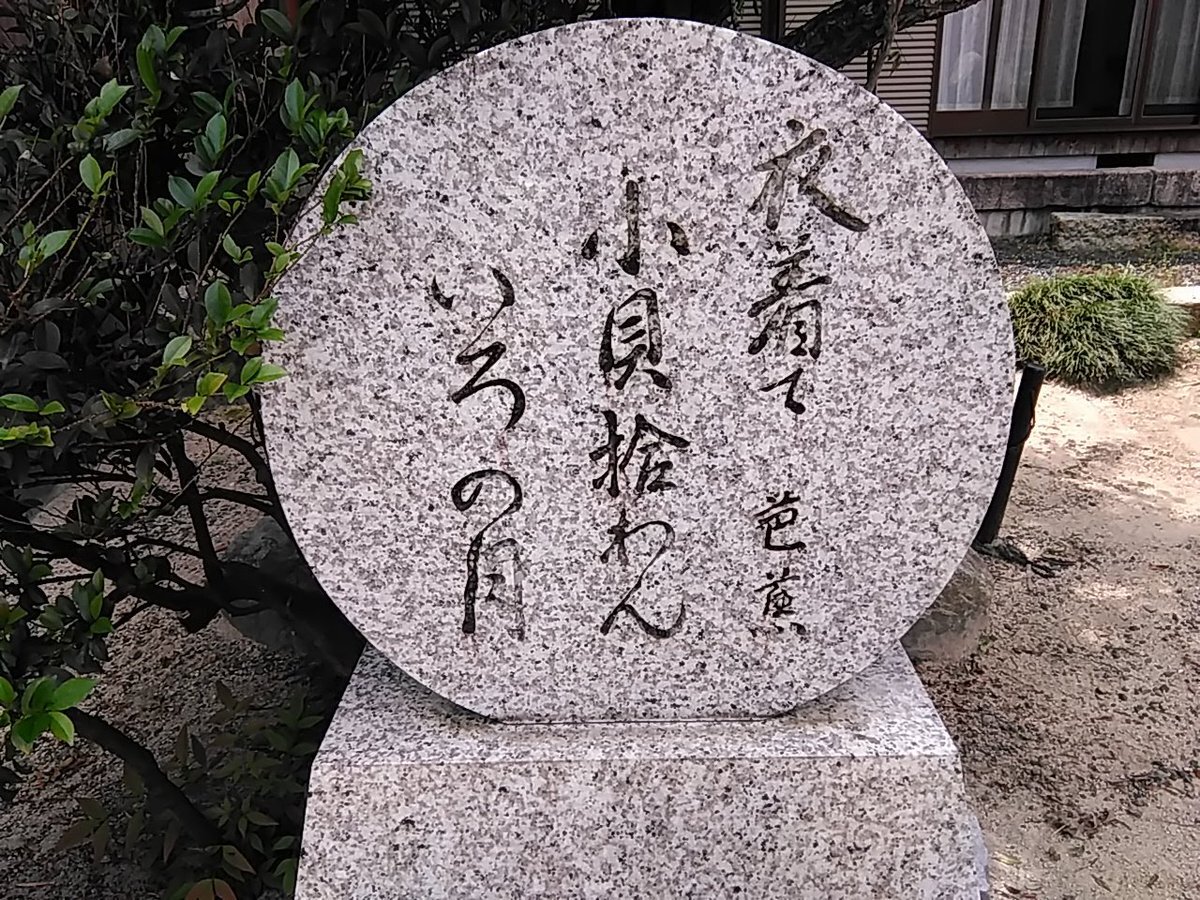 衣着て 芭蕉
小貝拾わん
いろの月